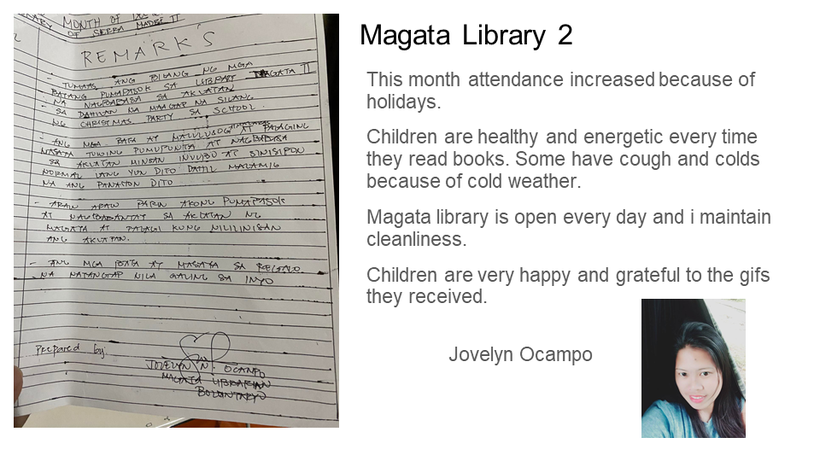 MONTH OF
OF SERRA MADRE II
REMARKS
- TUMAAS ANG BILANG NG MGA
BATANG PUMAPASOK SA LIBRARY MAGATA II
NA NAGBABASA SA AKLATAN
SA DAHILAN NA MAAGAP NA SILANG
NG CHRISTMAS PARTY SA SCHOOL.
- ANG MGA BATA AY MALULUSOG AT PALAGING
MASAYA TUWING PUMUPUNTA AT NAGBABASA
SA AKLATAN MINSAN INUUBO AT SINISIPON
NORMAL LANG YUN DITO DAHIL MALAMIG
NA ANG PANAHON DITO
- ARAW ARAW PARIN AKONG PUMAPASOK
AT NAGBABANTAY SA AKLATAN NG
MAGATA AT PALAGI KUNG NILILINISAN
ANG AKLATAN.
- ANG MGA BATA AY MASAYA SA REGALO
NA NATANGGAP NILA GALING SA INYO
Prepared by:
JOVELYN N. OCAMPO
MAGATA LIBRARIAN
Magata Library 2
This month attendance increased because of
holidays.
Children are healthy and energetic every time
they read books. Some have cough and colds
because of cold weather.
Magata library is open every day and i maintain
cleanliness.
Children are very happy and grateful to the gifs
they received.
Jovelyn Ocampo